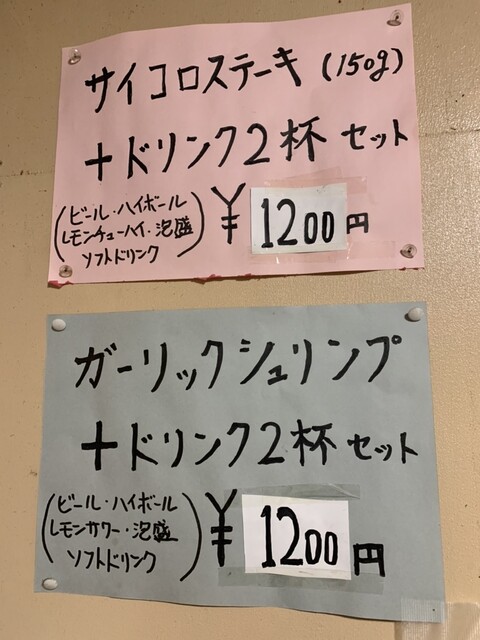 サイコロステーキ (150g)
+ドリンク2杯 セット
(ビール・ハイボール
レモンチューハイ・泡盛
ソフトドリンク)
¥1200円
ガーリックシュリンプ
+ドリンク2杯 セット
(ビール・ハイボール
レモンサワー・泡盛
ソフトドリンク)
¥1200円